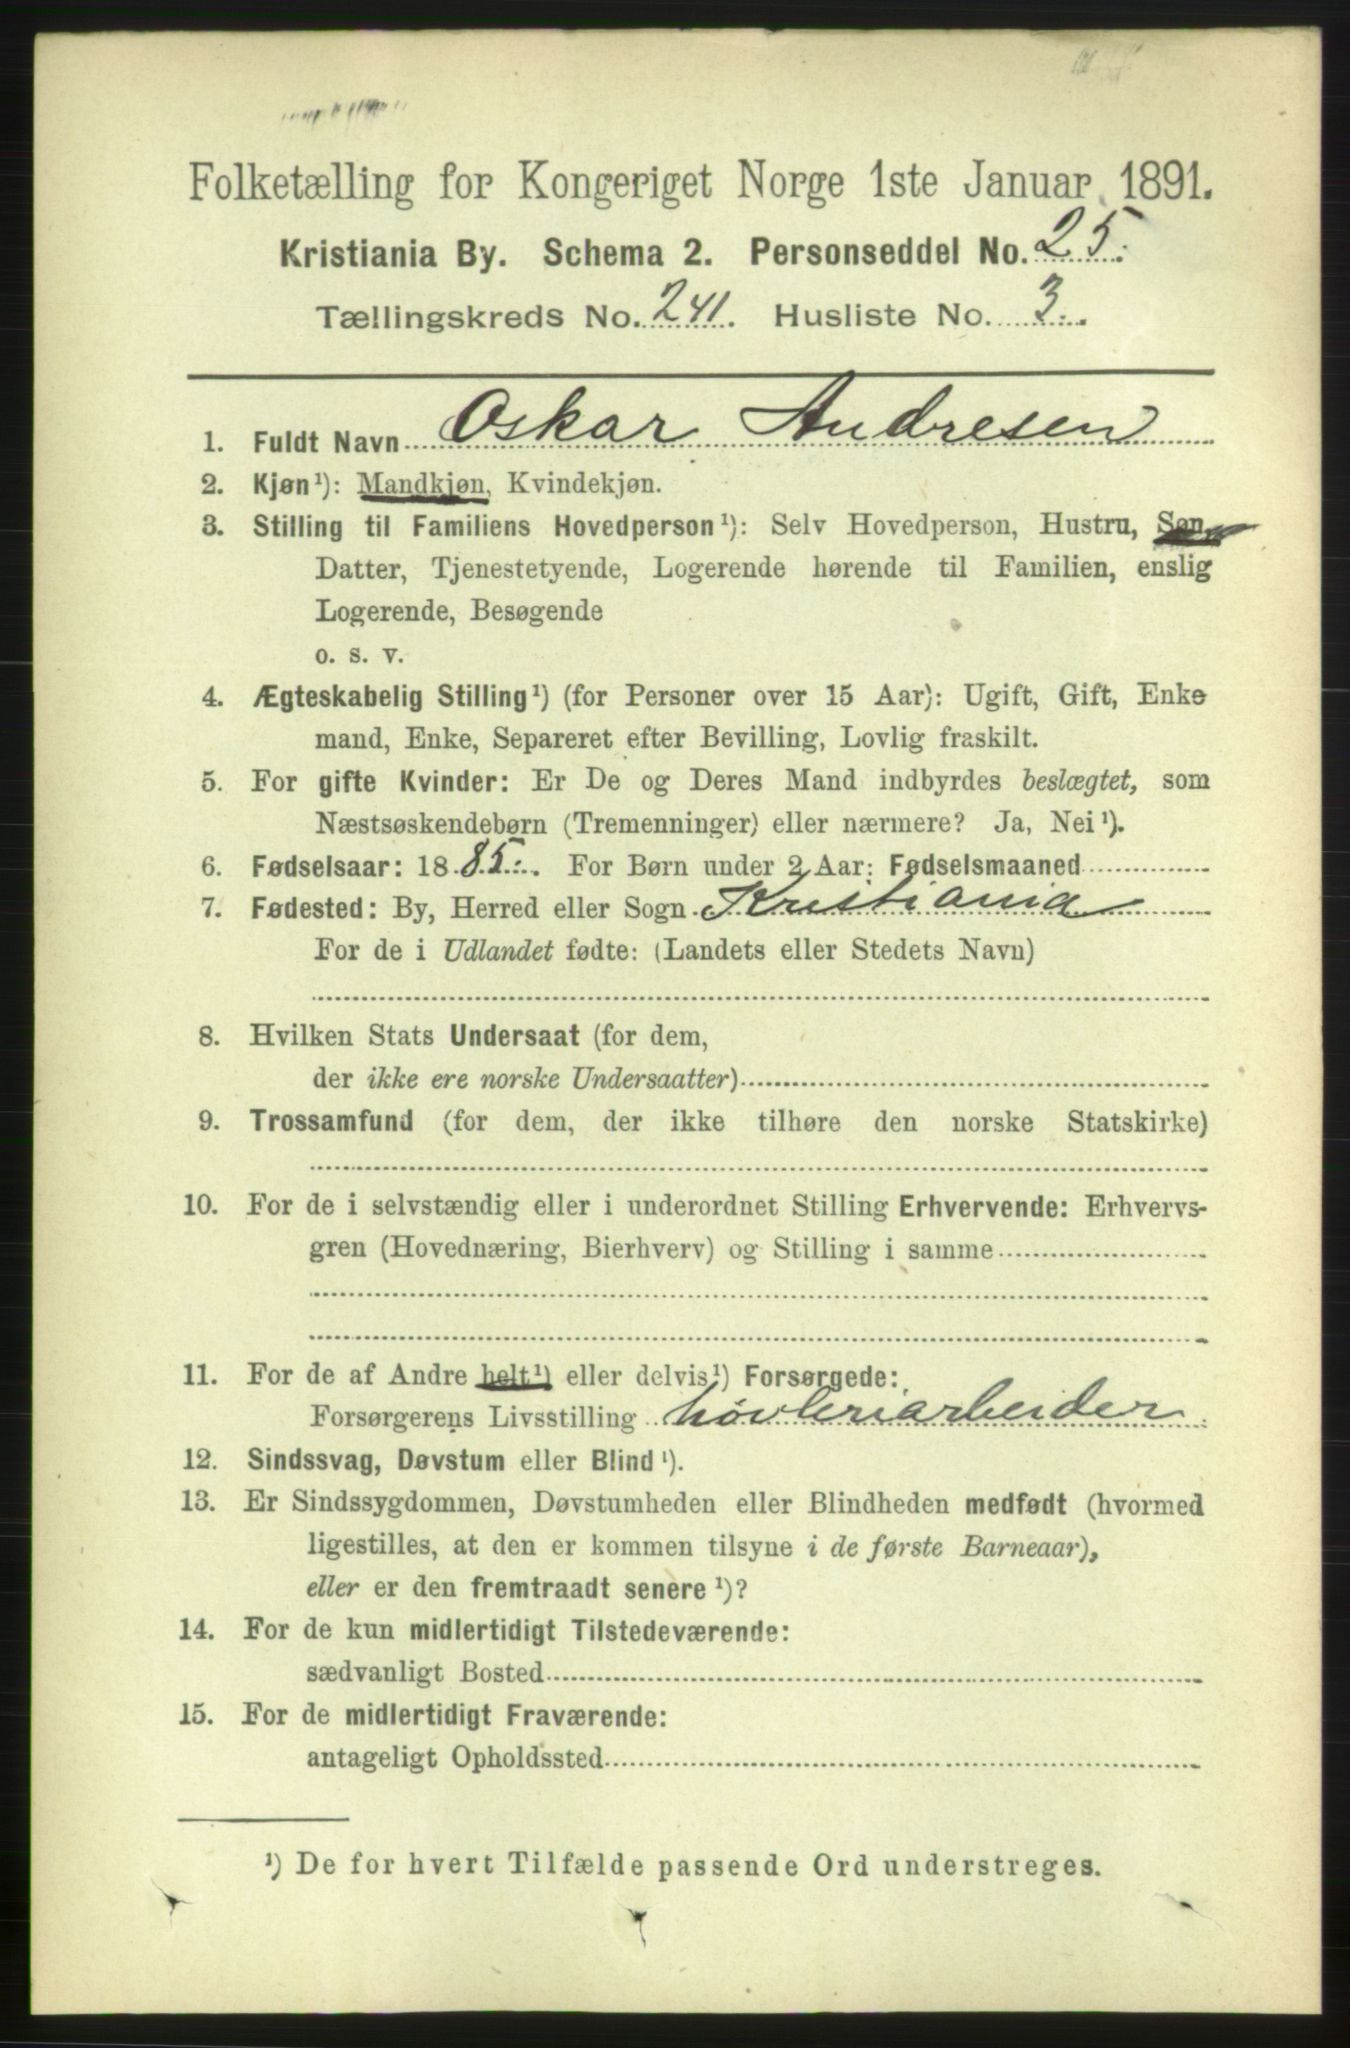 Folketælling for Kongeriget Norge 1ste Januar 1891.
Kristiania By. Schema 2. Personseddel No. 25.
Tællingskreds No. 241. Husliste No. 3.
1. Fuldt Navn Oskar Andresen
2. Kjøn¹): Mandkjøn, Kvindekjøn.
3. Stilling til Familiens Hovedperson¹): Selv Hovedperson, Hustru, Søn,
Datter, Tjenestetyende, Logerende hørende til Familien, enslig
Logerende, Besøgende
o. s. v.
4. Ægteskabelig Stilling¹) (for Personer over 15 Aar): Ugift, Gift, Enke
mand, Enke, Separeret efter Bevilling, Lovlig fraskilt.
5. For gifte Kvinder: Er De og Deres Mand indbyrdes beslægtet, som
Næstsøskendebørn (Tremenninger) eller nærmere? Ja, Nei¹).
6. Fødselsaar: 1885. For Børn under 2 Aar: Fødselsmaaned
7. Fødested: By, Herred eller Sogn Kristiania
For de i Udlandet fødte: (Landets eller Stedets Navn)
8. Hvilken Stats Undersaat (for dem,
der ikke ere norske Undersaatter)
9. Trossamfund (for dem, der ikke tilhøre den norske Statskirke)
10. For de i selvstændig eller i underordnet Stilling Erhvervende: Erhvervs-
gren (Hovednæring, Bierhverv) og Stilling i samme
11. For de af Andre helt¹) eller delvis¹) Forsørgede:
Forsørgerens Livsstilling høvleriarbeider
12. Sindssvag, Døvstum eller Blind¹).
13. Er Sindssygdommen, Døvstumheden eller Blindheden medfødt (hvormed
ligestilles, at den er kommen tilsyne i de første Barneaar),
eller er den fremtraadt senere¹)?
14. For de kun midlertidigt Tilstedeværende:
sædvanligt Bosted
15. For de midlertidigt Fraværende:
antageligt Opholdssted
¹) De for hvert Tilfælde passende Ord understreges.